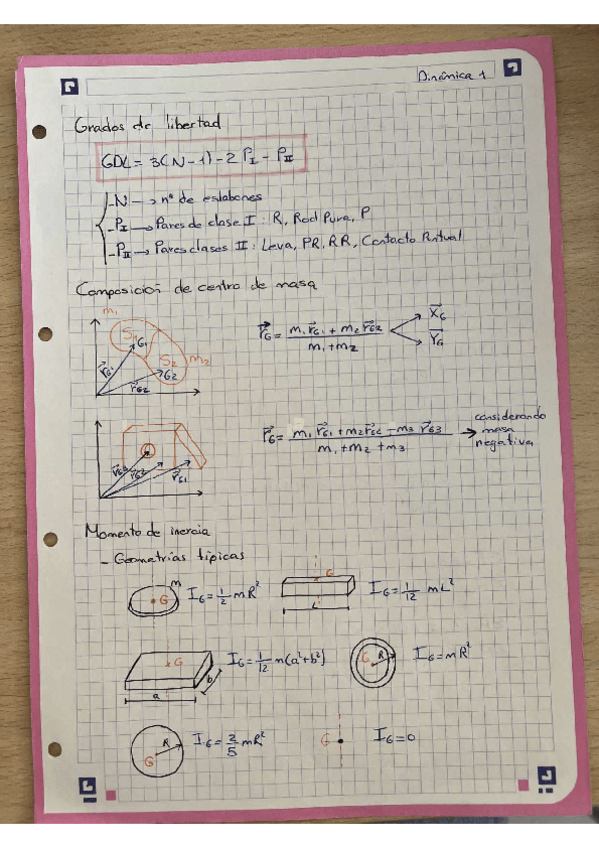 Dinámica 1
Grados de libertad
GDL = 3(N-1) - 2 P_I - P_II
- N → nº de eslabones
- P_I → Pares de clase I : R, Rod Pura, P
- P_II → Pares clases II : Leva, PR, RR, Contacto Puntual
Composición de centro de masa
m₁
S₁ G₁
S₂ m₂
G₂
r⃗G1
r⃗G2
r⃗G = (m₁ r⃗G1 + m₂ r⃗G2) / (m₁ + m₂)
X⃗G
Y⃗G
r⃗G3 r⃗G2 r⃗G1
r⃗G = (m₁ r⃗G1 + m₂ r⃗G2 - m₃ r⃗G3) / (m₁ + m₂ + m₃) → considerando
masa
negativa
Momento de inercia
- Geometrías típicas
m
G
I_G = 1/2 mR²
G
L
I_G = 1/12 mL²
G
a
b
I_G = 1/12 m(a²+b²)
G R
I_G = mR²
R
G
I_G = 2/5 mR²
G
I_G = 0